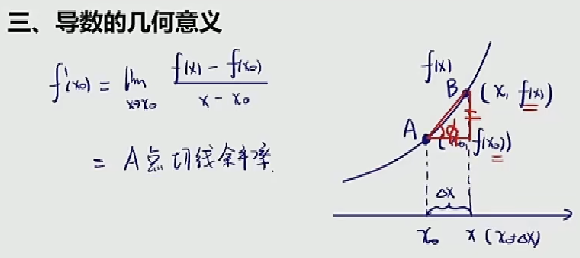 三、导数的几何意义
f'(x₀) = lim x→x₀ f(x) - f(x₀) / x - x₀
= A点切线斜率.
f(x)
B (x, f(x))
A (x₀, f(x₀))
Δx
x₀ x (x₀+Δx)